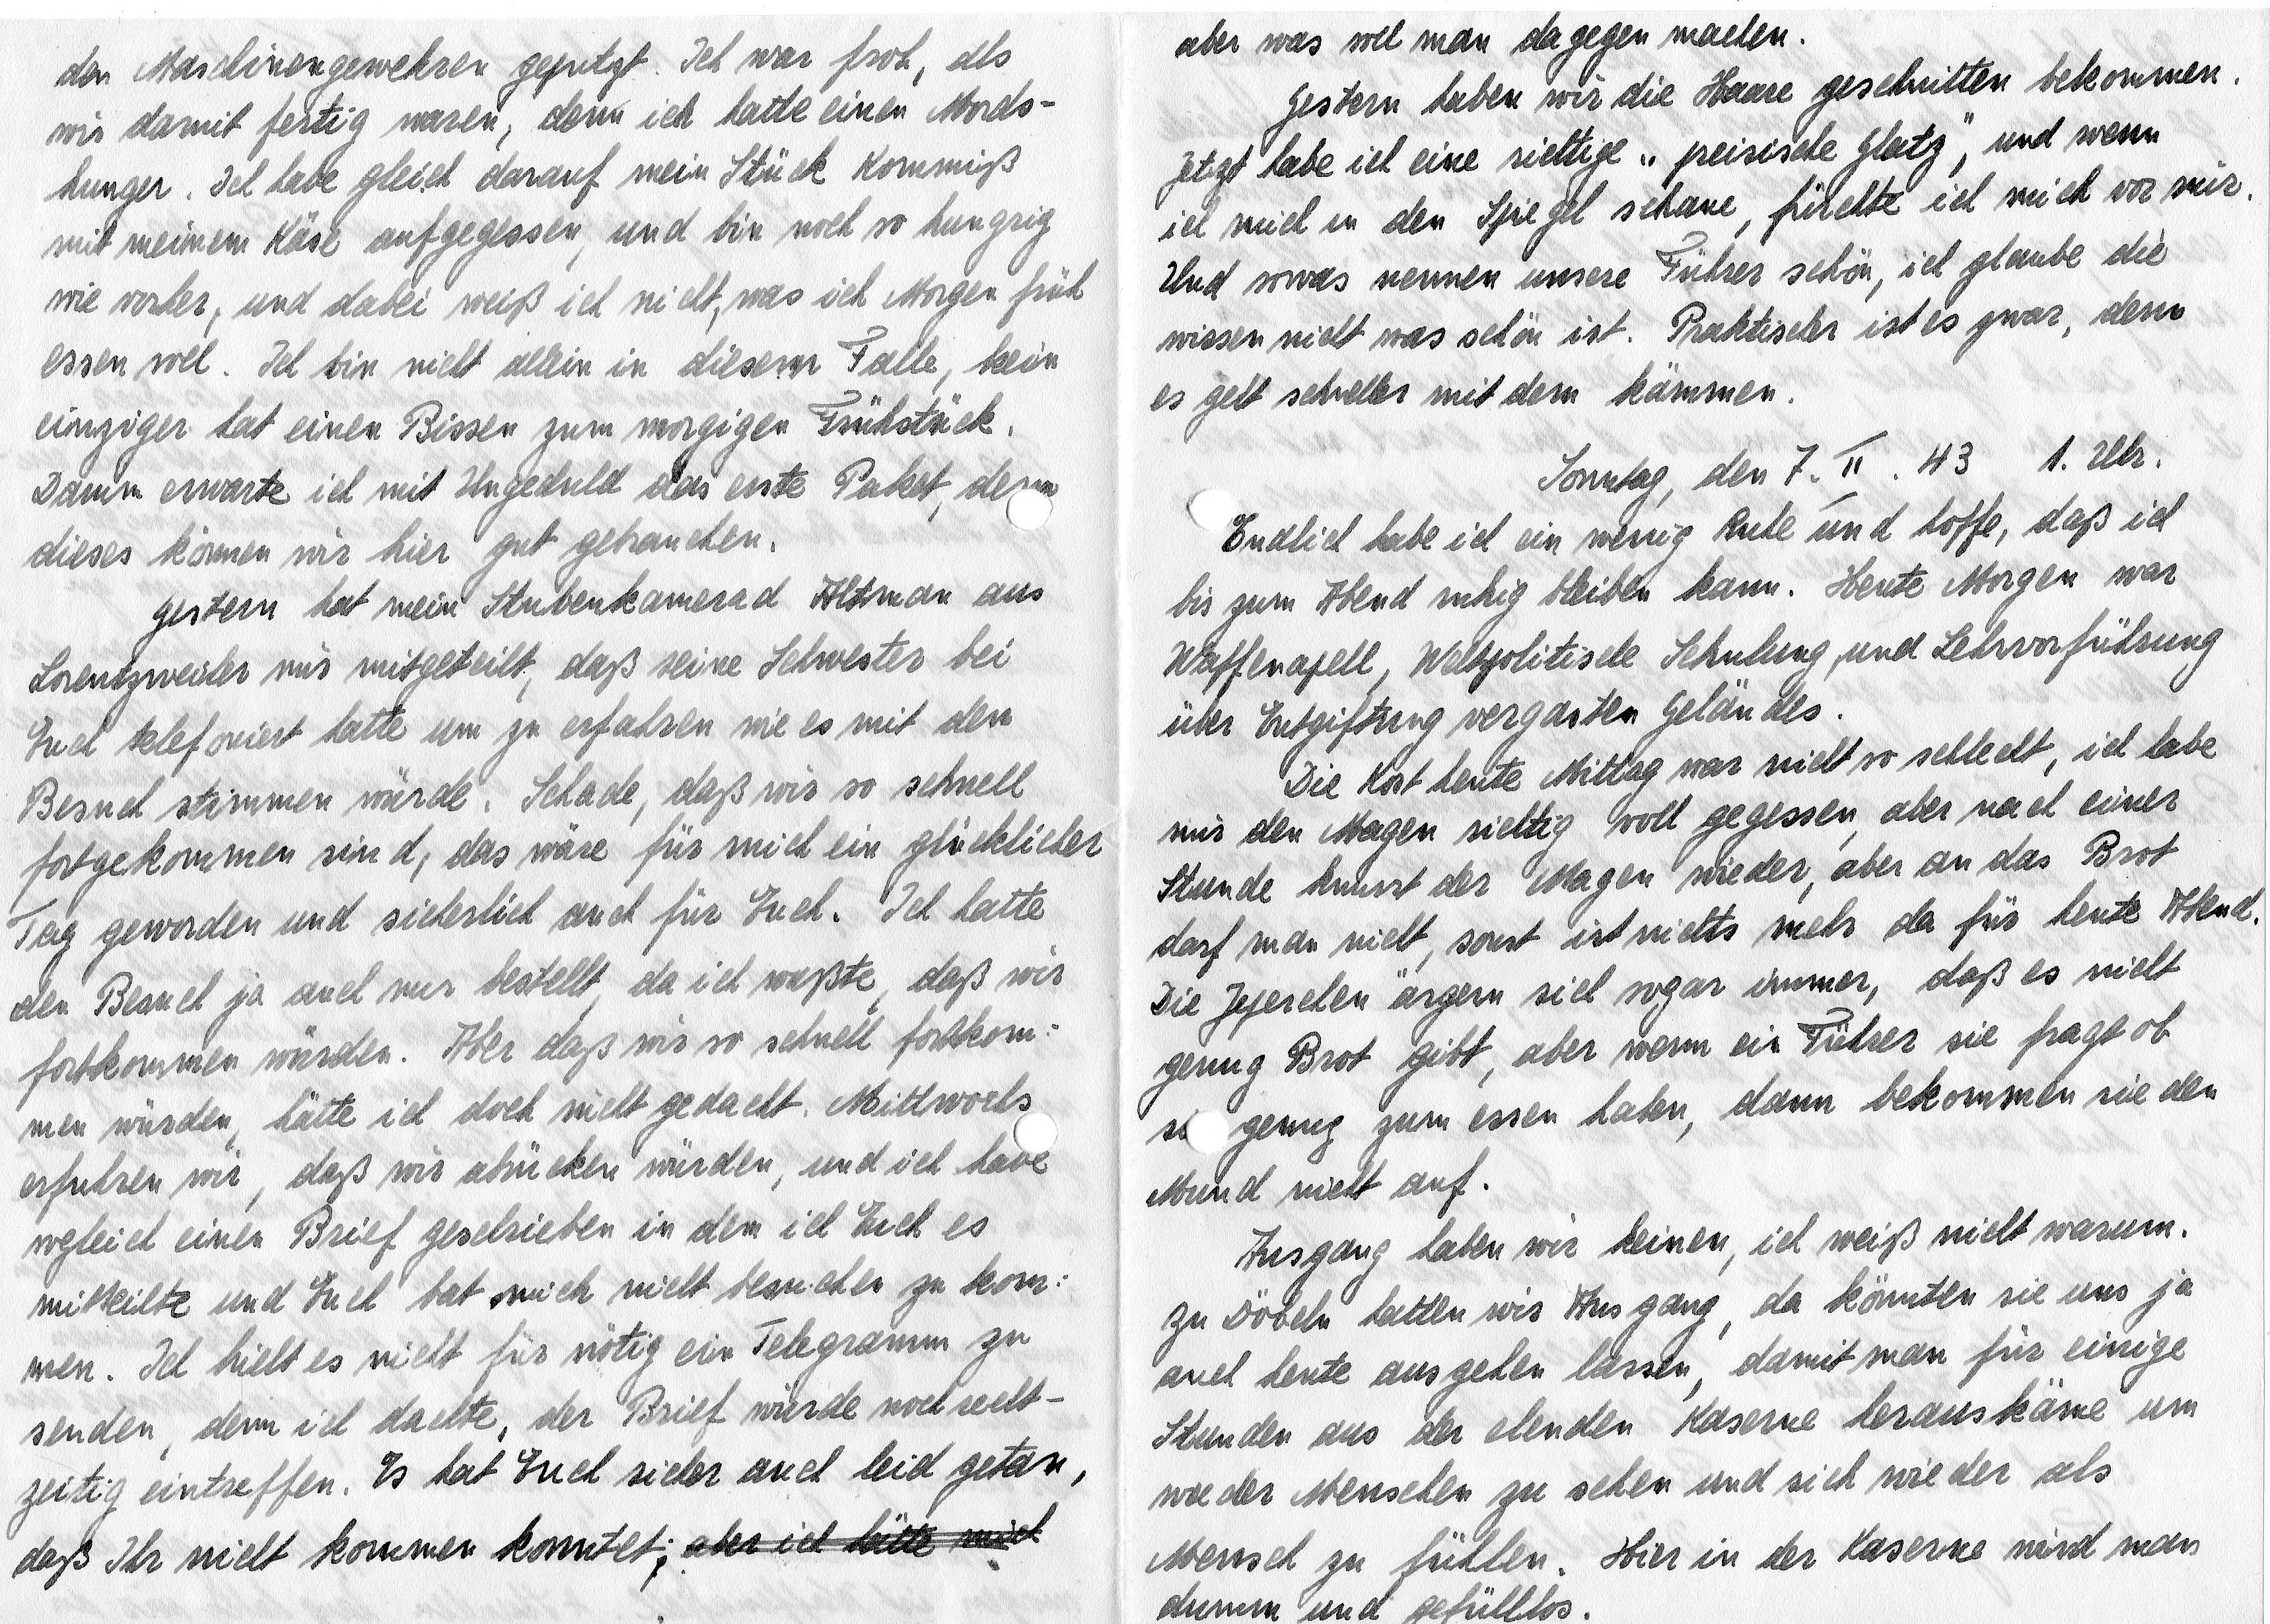 den Maschinengewehren geputzt. Ich war froh, als
wir damit fertig waren, denn ich hatte einen Mords-
hunger. Ich habe gleich darauf mein Stück Kommiß
mit meinem Käse aufgegessen, und bin noch so hungrig
wie vorher, und dabei weiß ich nicht, was ich Morgen früh
essen soll. Ich bin nicht allein in diesem Falle, kein
einziger hat einen Bissen zum morgigen Frühstück.
Darum erwarte ich mit Ungeduld das erste Paket, denn
dieses können wir hier gut gebrauchen.
Gestern hat mein Stubenkamerad Altman aus
Lorentzweiler mir mitgeteilt, daß seine Schwester bei
Euch telefoniert hatte um zu erfahren wie es mit dem
Besuch stimmen würde. Schade, daß wir so schnell
fortgekommen sind, das wäre für mich ein glücklicher
Tag geworden und sicherlich auch für Euch. Ich hatte
den Besuch ja auch nur bestellt, da ich wußte, daß wir
fortkommen würden. Aber daß wir so schnell fortkom:
men würden, hätte ich doch nicht gedacht. Mittwochs
erfuhren wir, daß wir abrücken würden, und ich habe
sogleich einen Brief geschrieben in dem ich Euch es
mitteilte und Euch bat mich nicht besuchen zu kom:
men. Ich hielt es nicht für nötig ein Telegramm zu
senden, denn ich dachte, der Brief würde noch recht-
zeitig eintreffen. Es hat Euch sicher auch leid getan,
daß Ihr nicht kommen konntet; aber ich hätte mich
aber was soll man dagegen machen.
Gestern haben wir die Haare geschnitten bekommen.
Jetzt habe ich eine richtige „preisische Glatz", und wenn
ich mich in den Spiegel schaue, fürchte ich mich vor mir.
Und sowas nennen unsere Führer schön, ich glaube die
wissen nicht was schön ist. Praktischer ist es zwar, denn
es geht schneller mit dem kämmen.
Sonntag, den 7. II. 43 1. Uhr.
Endlich habe ich ein wenig Ruhe und hoffe, daß ich
bis zum Abend ruhig bleiben kann. Heute Morgen war
Waffenapell, Weltpolitische Schulung, und Lehrvorführung
über Entgiftung vergasten Geländes.
Die Kost heute Mittag war nicht so schlecht, ich habe
mir den Magen richtig voll gegessen, aber nach einer
Stunde knurrt der Magen wieder, aber an das Brot
darf man nicht, sonst ist nichts mehr da für heute Abend.
Die ärgern sich sogar immer, daß es nicht
genug Brot gibt, aber wenn ein Führer sie fragt ob
sie genug zum essen haben, dann bekommen sie den
Mund nicht auf.
Ausgang haben wir keinen, ich weiß nicht warum.
Zu Döbeln hatten wir Ausgang, da könnten sie uns ja
auch heute ausgehen lassen, damit man für einige
Stunden aus der elenden Kaserne herauskäme um
wieder Menschen zu sehen und sich wieder als
Mensch zu fühlen. Hier in der Kaserne wird man
dumm und gefülllos.